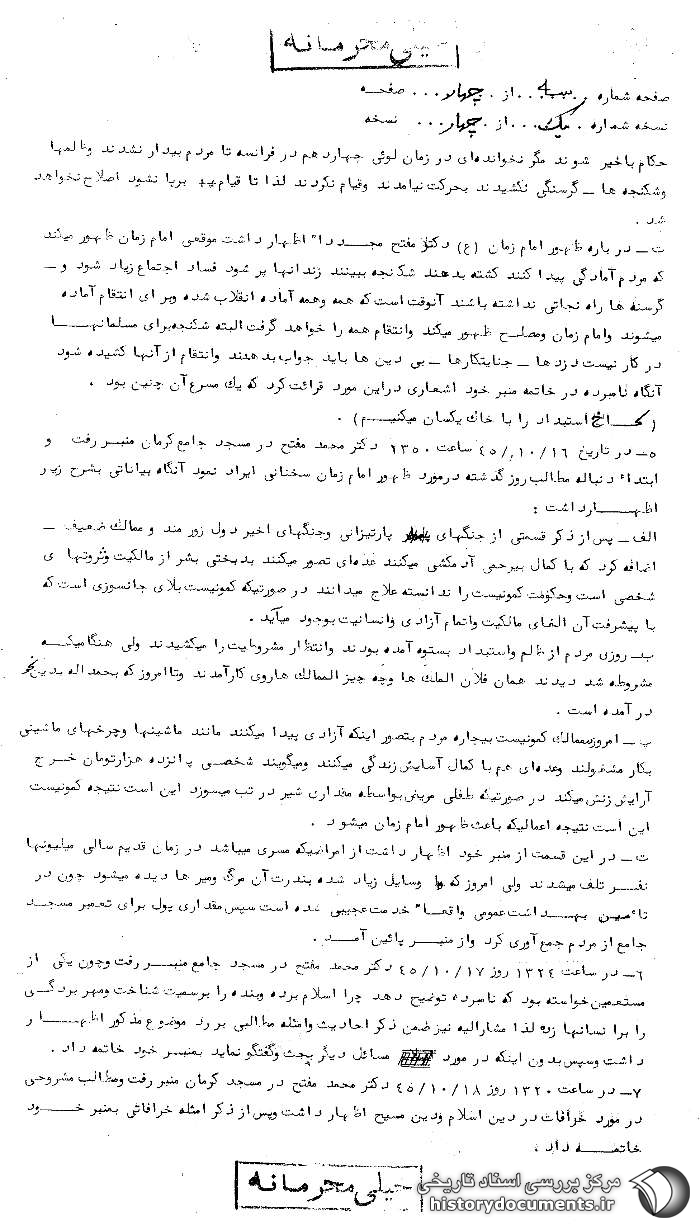 خیلی محرمانه
صفحه شماره . سه . . از . چهار . . . صفحه
نسخه شماره . یک . . . از . چهار . . . نسخه
حکام باخبر شوند مگر نخوانده‌ای در زمان لوئی چهاردهم در فرانسه تا مردم بیدار نشدند وظالمها
وشکنجه ها ـ گرسنگی نکشیدند بحرکت نیامدند وقیام نکردند لذا تا قیام برپا نشود اصلاح نخواهد
شد .
ت ـ در باره ظهور امام زمان (ع) دکتر مفتح مجددا" اظهار داشت موقعی امام زمان ظهور میکند
که مردم آمادگی پیدا کنند کشته بدهند شکنجه ببینند زندانها پر شود فساد اجتماع زیاد شود و ـ
گرسنه ها راه نجاتی نداشته باشند آنوقت است که همه وهمه آماده انقلاب شده وبرای انتقام آماده
میشوند وامام زمان ومصلح ظهور میکند وانتقام همه را خواهد گرفت البته شکنجه برای مسلمانهـا
در کار نیست دزدها ـ جنایتکارها ـ بی دین ها باید جواب بدهند وانتقام از آنها کشیده شود
آنگاه نامبرده در خاتمه منبر خود اشعاری دراین مورد قرائت کرد که یك مسرع آن چنین بود .
( کـــاخ استبداد را با خاك یکسان میکنیـــم ) .
۵ـ در تاریخ ۴۵/۱۰/۱۶ ساعت ۱۳۵۰ دکتر محمد مفتح در مسجد جامع کرمان منبـر رفت و
ابتدا" دنباله مطالب روز گذشته درمورد ظهور امام زمان سخنانی ایراد نمود آنگاه بیاناتی بشرح زیر
اظهـــار داشت :
الف ـ پس از ذکر قسمتی از جنگهای پارتیزانی وجنگهای اخیر دول زور مند و ممالك ضعیف ـ
اضافه کرد که با کمال بیرحمی آدمکشی میکنند عده‌ای تصور میکنند بدبختی بشر از مالکیت وثروتها ی
شخصی است وحکومت کمونیست را ندانسته علاج میدانند در صورتیکه کمونیست بلای جانسوزی است که
با پیشرفت آن الغای مالکیت واتمام آزادی وانسانیت بوجود میآید .
ب ـ روزی مردم از ظلم واستبداد بستوه آمده بودند وانتظار مشروطیت را میکشیدند ولی هنگامیکـــه
مشروطه شد دیدند همان فلان الملك ها وچه چیز الممالك هاروی کارآمدند وتاامروز که بحمداله بدین نحو
در آمده است .
پ ـ امروز ممالك کمونیست بیچاره مردم بتصور اینکه آزادی پیدا میکنند مانند ماشینها وچرخهای ماشینی
بکار مشغولند وعده‌ای هم با کمال آسایش زندگی میکنند ومیگویند شخصی پانزده هزارتومان خـرج
آرایش زنش میکند در صورتیکه طفلی مریض بواسطه مقداری شیر در تب میسوزد این است نتیجه کمونیست
این است نتیجه اعمالیکه باعث ظهور امام زمان میشود .
ت ـ در این قسمت از منبر خود اظهار داشت از امراضیکه مسری میباشد در زمان قدیم سالی میلیونها
نفـــر تلف میشدند ولی امروز که وسایل زیاد شده بندرت آن مرگ ومیر ها دیده میشود چون در
تامین بهـــداشت عمومی واقعا" خدمت عجیبی شده است سپس مقداری پول برای تعمیر مسجـد
جامع از مردم جمع آوری کرد واز منبـــر پائین آمـــد .
۶ـ در ساعت ۱۳۲۴ روز ۴۵/۱۰/۱۷ دکتر محمد مفتح در مسجد جامع منبـــر رفت وچون یکی از
مستعمین خواسته بود که نامبرده توضیح دهد چرا اسلام برده وبنده را برسمیت شناخت ومهر بردگـی
را برا نسانها زده لذا مشارالیه نیز ضمن ذکر احادیث وامثله مطالبی بر رد موضوع مذکور اظهـــار
داشت وسپس بدون اینکه در مورد مسائل دیگر بحث وگفتگو نماید بمنبـر خود خاتمه داد .
۷ـ در ساعت ۱۳۲۰ روز ۴۵/۱۰/۱۸ دکتر محمد مفتح در مسجد کرمان منبر رفت ومطالب مشروحی
در مورد خرافات در دین اسلام ودین مسیح اظهار داشت وپس از ذکر امثله خرافاتی بمنبر خـــود
خاتمـــه داد .
خیلی محرمانه
مرکز بررسی اسناد تاریخی
historydocuments.ir